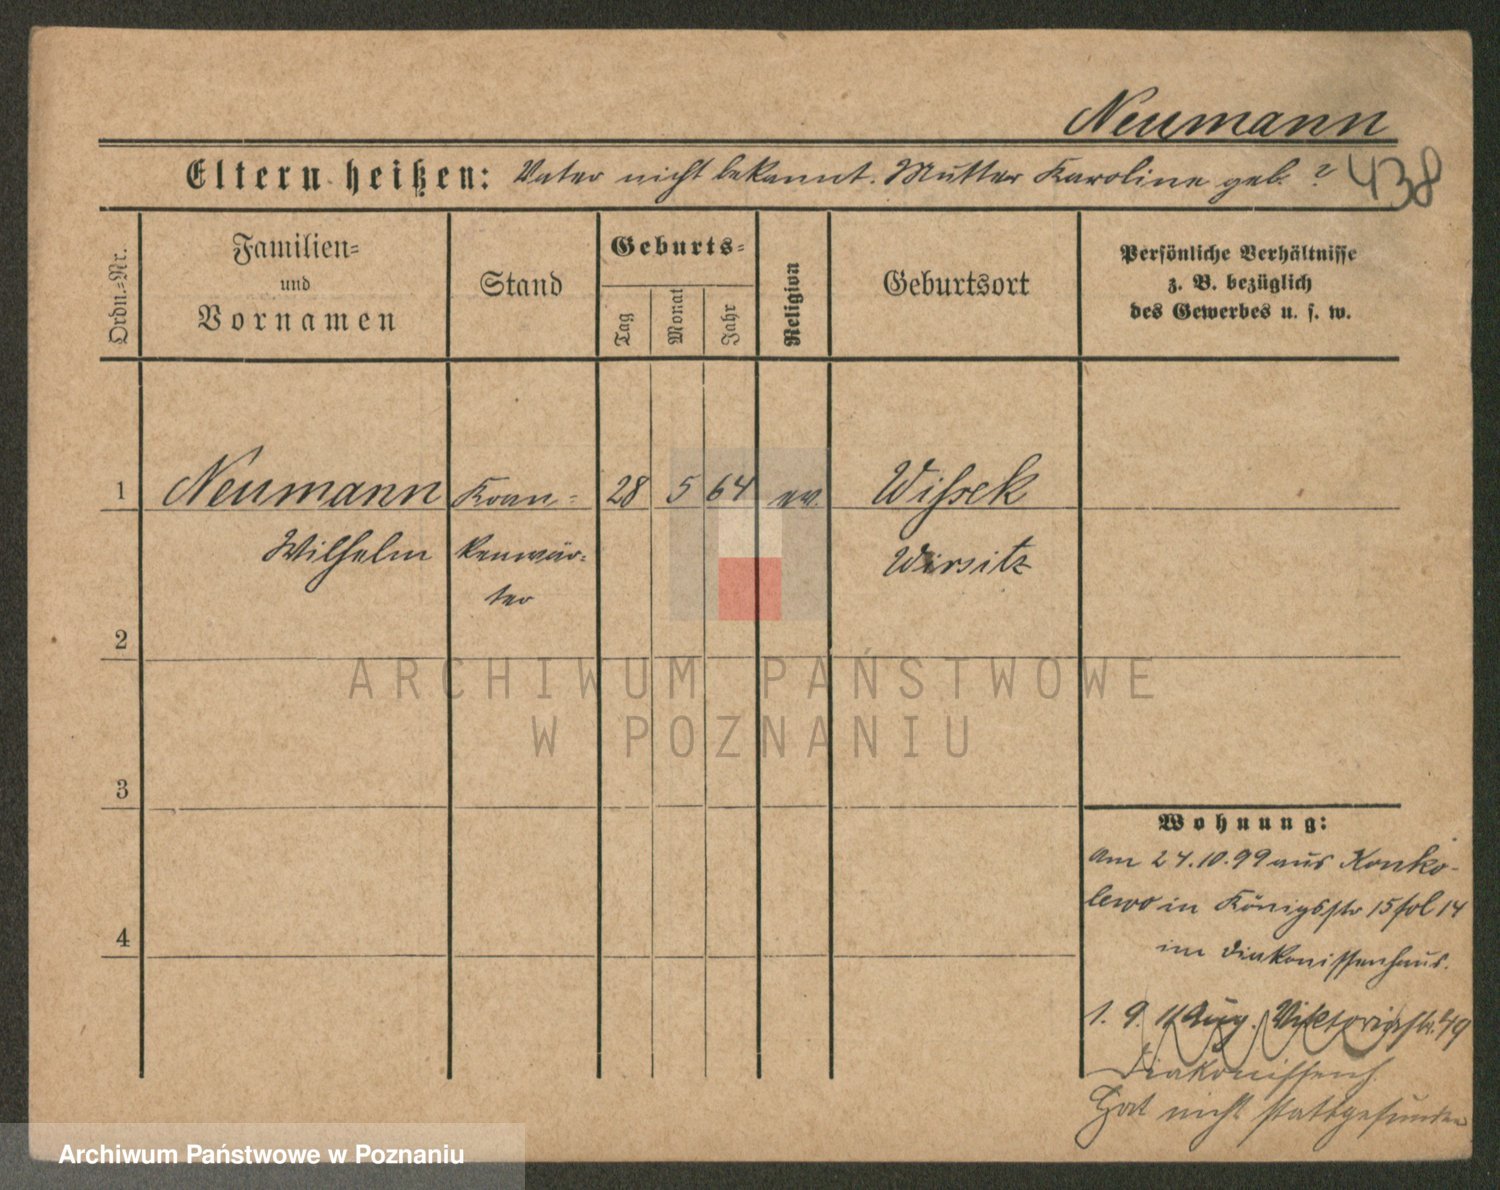 Neumann
Eltern heißen: Vater nicht bekannt. Mutter Karoline geb. ?
438
Ordn.-Nr.
Familien-
und
Vornamen
Stand
Geburts-
Tag
Monat
Jahr
Religion
Geburtsort
Persönliche Verhältnisse
z. B. bezüglich
des Gewerbes u. s. w.
1 Neumann Kran- 28 5 64 ev. Wissek
Wilhelm kenwär- Wirsitz
ter
2
3
4
Wohnung:
Am 24.10.99 aus Konko-
lewo in Königsstr 15 fol 14
im Diakonissenhaus.
1. 9. 11 Aug. Viktoriastr.
Diakonissenh.
Hat nicht stattgefunden
ARCHIWUM PAŃSTWOWE
W POZNANIU
Archiwum Państwowe w Poznaniu